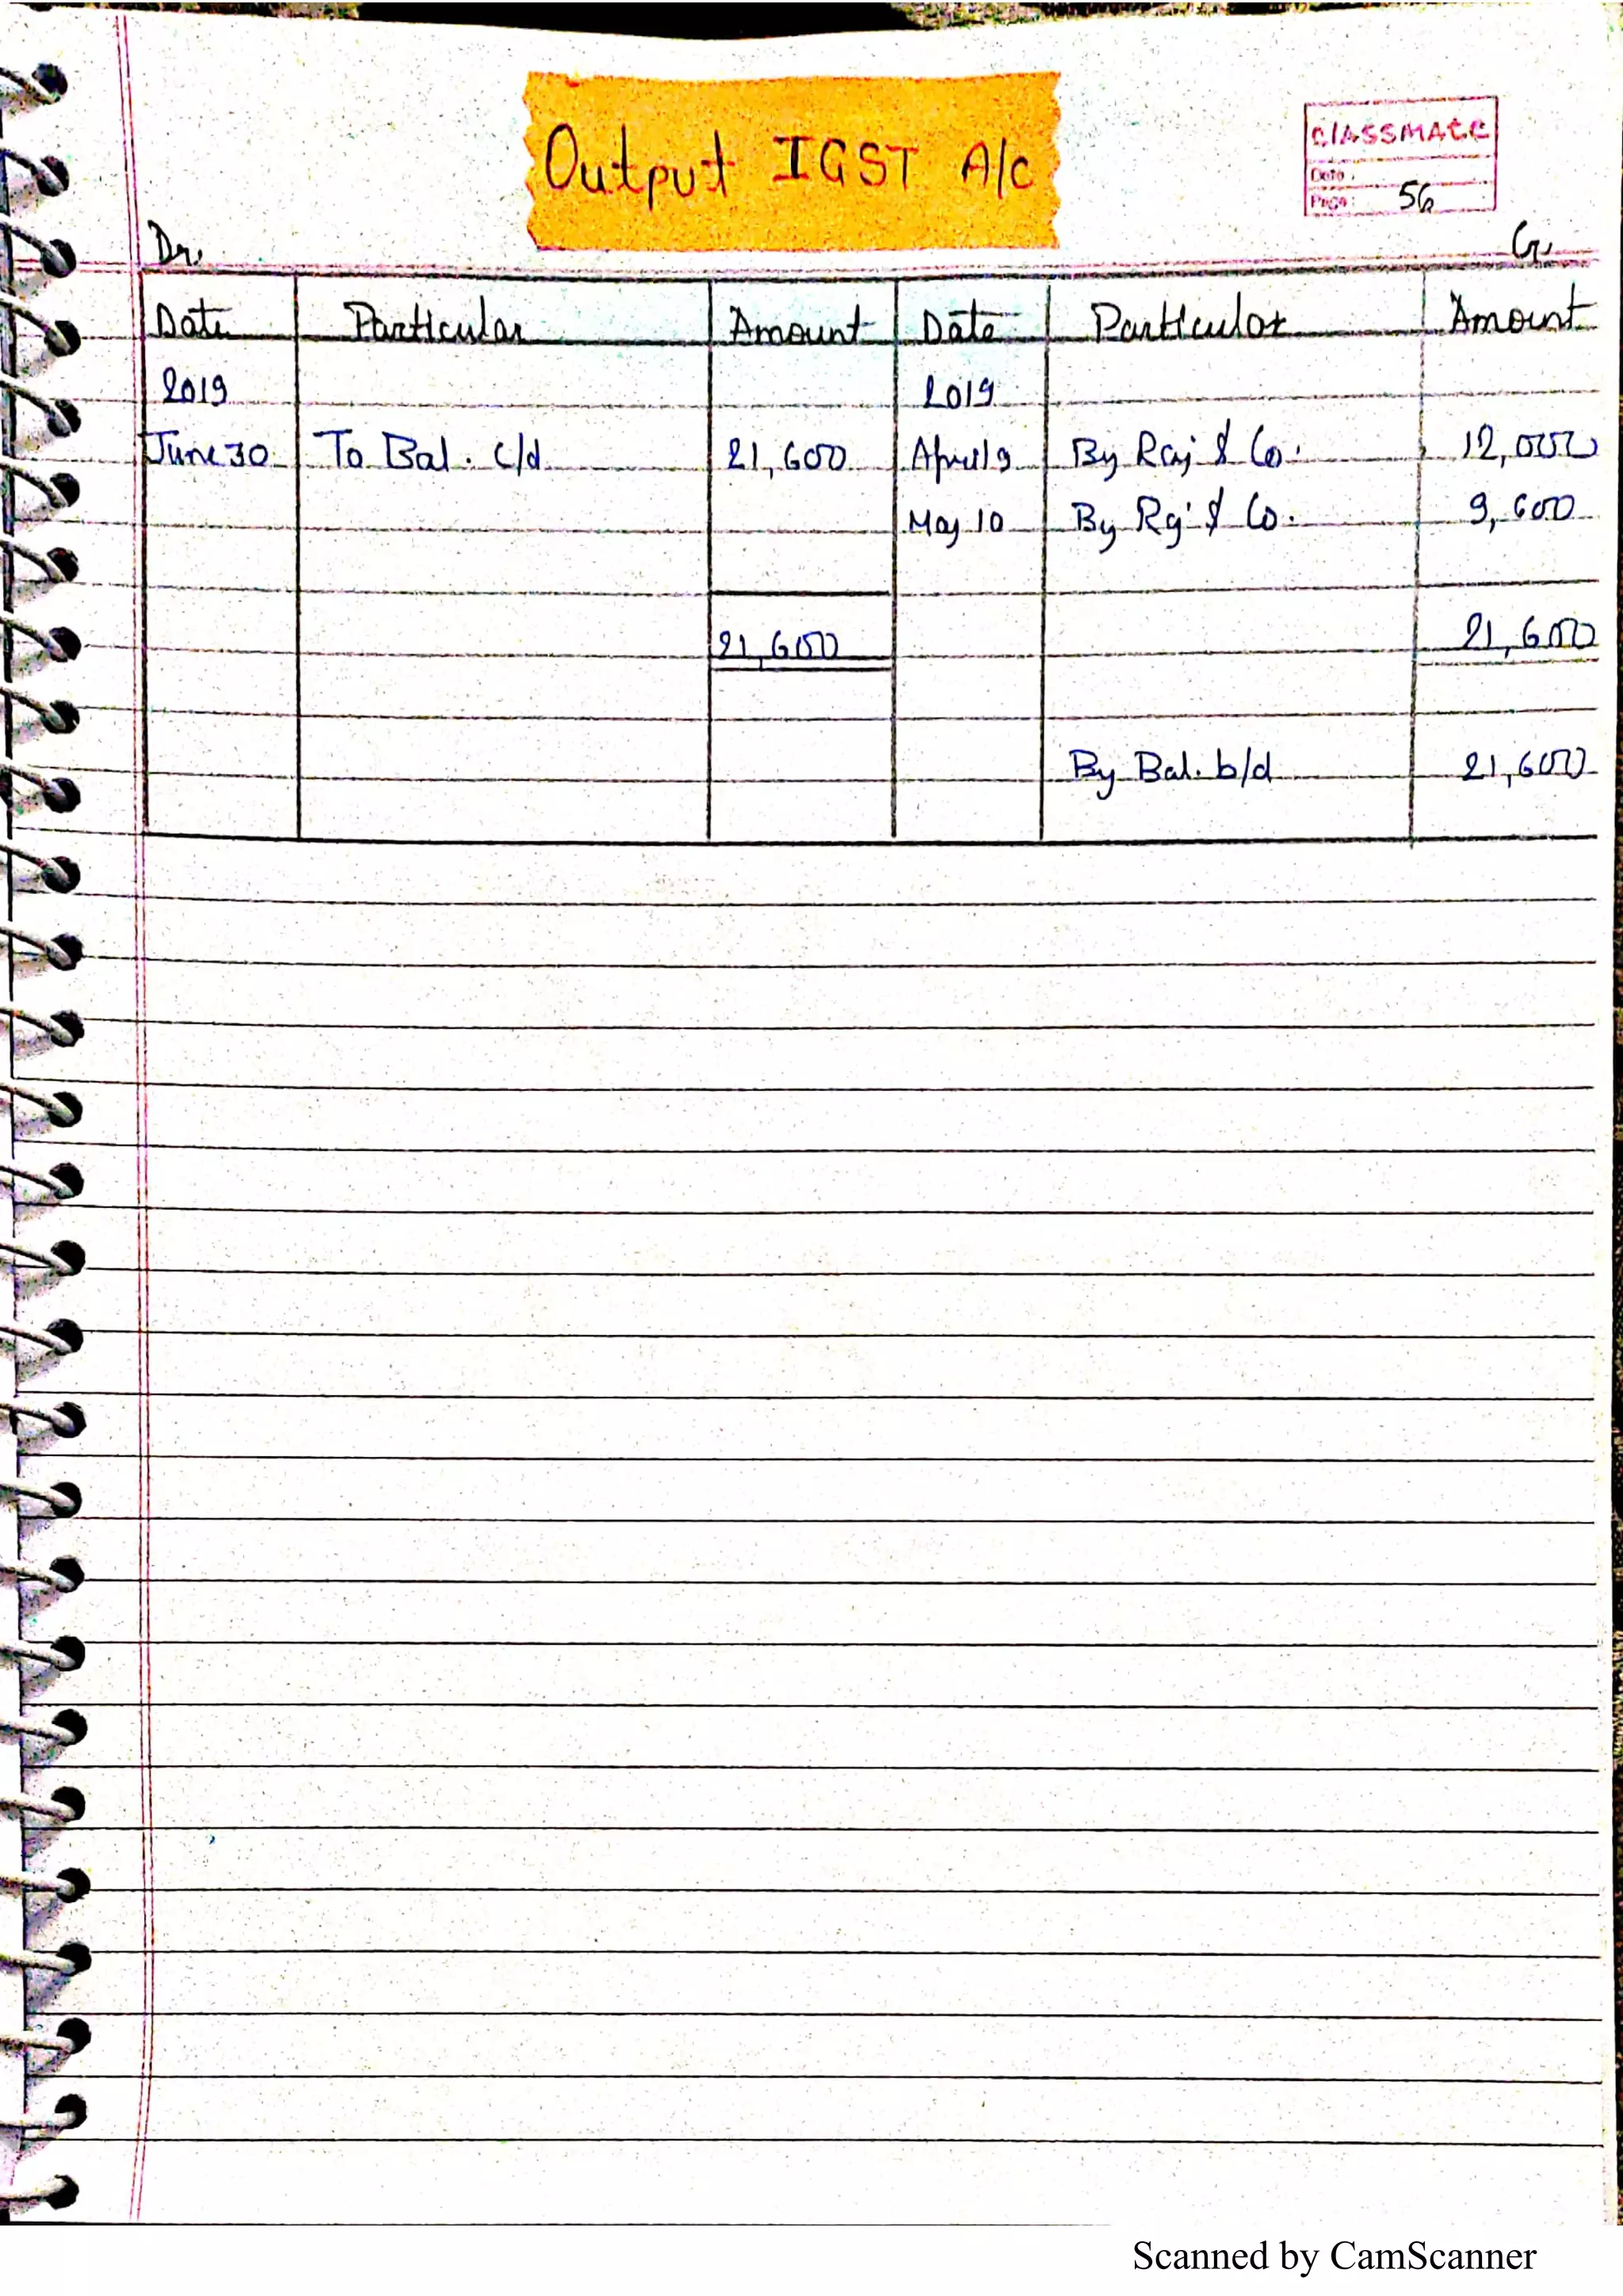 Output IGST A/c
CLASSMATE
Date :
Page : 56
Dr. Cr.
Date Particular Amount Date Particular Amount
2019 2019
June 30 To Bal. c/d 21,600 April 9 By Raj & Co. 12,000
May 10 By Raj & Co. 9,600
21,600 21,600
By Bal. b/d 21,600
Scanned by CamScanner